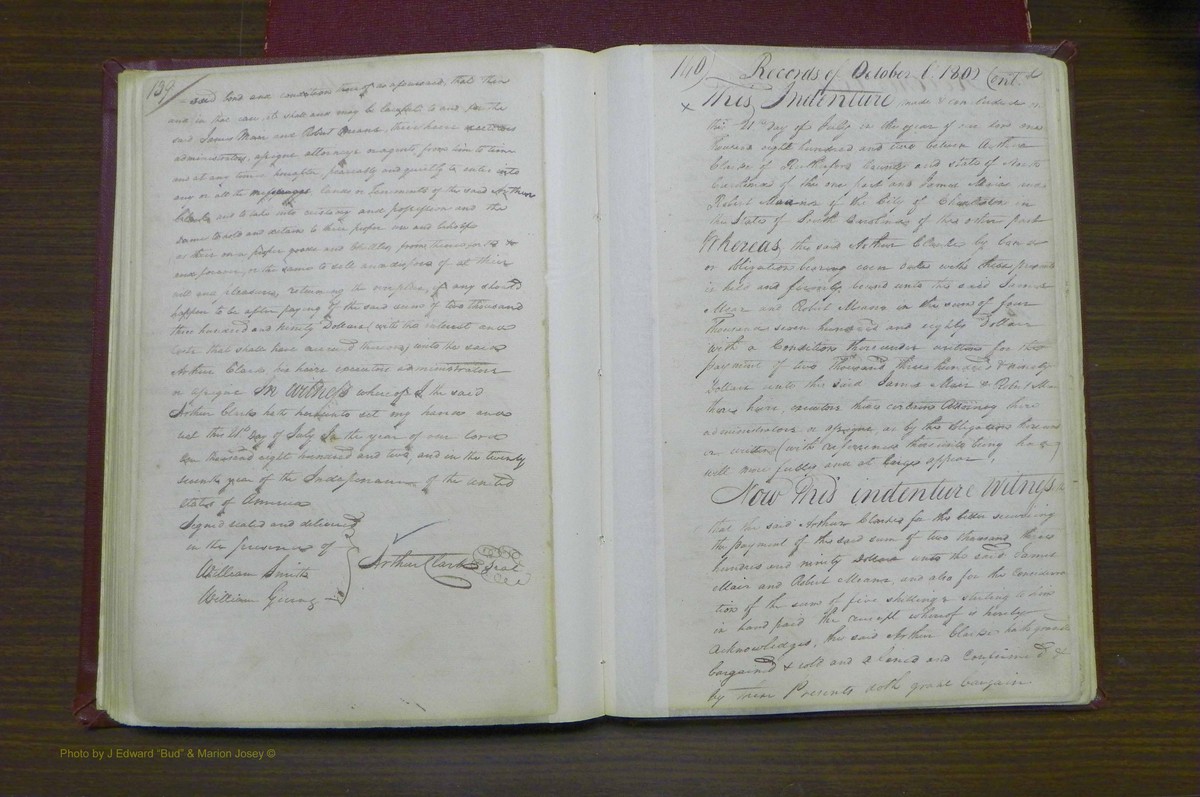 139
said bond and condition thereof as aforesaid, that then
and in that case, it shall and may be lawful to and for the
said James Mair and Robert Means, their heirs executors
administrators, assigns attorneys or agents, from him to time
and at any times hereafter, peaceably and quietly to enter into
any or all the messuages lands or Tenements of the said Arthur
Clark and to take into custody and possession and the
same to hold and detain to their proper use and behoofs
as their own proper goods and Chattles, from thenceforth &
and forever, or the same to sell and dispose of at their
will and pleasure, returning the overplus, if any should
happen to be after paying of the said sum of two thousand
three hundred and Ninety Dollars (with the interest and
costs that shall have accrued thereon) unto the said
Arthur Clarke his heirs executors administrators
or assigns In witness whereof I the said
Arthur Clark hath hereunto set my hand and
seal this 21st Day of July In the year of our Lord
thousand eight hundred and two, and in the twenty
seventh year of the Independence of the united
states of America
Signed sealed and delivered
in the presence of
William Smith
William Young
Arthur Clark Seal
140 Records of October C 1802 Cont.d
This Indenture, made & concluded
this 21st day of July in the year of our Lord one
thousand eight hundred and two between Arthur
Clarke of Rutherford County and state of North
Carolina of the one part and James Mair and
Robert Means of the City of Charleston in
the State of South Carolina of the other part
Whereas, the said Arthur Clarke by bond
or Obligation bearing even date with these presents
is held and firmly bound unto the said James
Mair and Robert Means in the sum of four
Thousand seven hundred and eighty Dollars
with a Condition thereunder written for the
payment of two Thousand three hundred & ninety
Dollars unto the said James Mair & Robert
their heirs, executors their certain Attorney their
administrators or assigns, as by the Obligation
written (with reference thereunto being had)
will more fully and at large appear,
Now This indenture Witness
that the said Arthur Clarke for the better securing
the payment of the said sum of two thousand three
hundred and ninety dollars unto the said James
Mair and Robert Means, and also for the Considera
tion of the sum of five shillings sterling to him
in hand paid the receipt whereof is hereby
acknowledged, the said Arthur Clarke hath granted
bargained & sold and aliened and Confirmed &
by these Presents doth grant bargain
Photo by J Edward "Bud" & Marion Josey ©